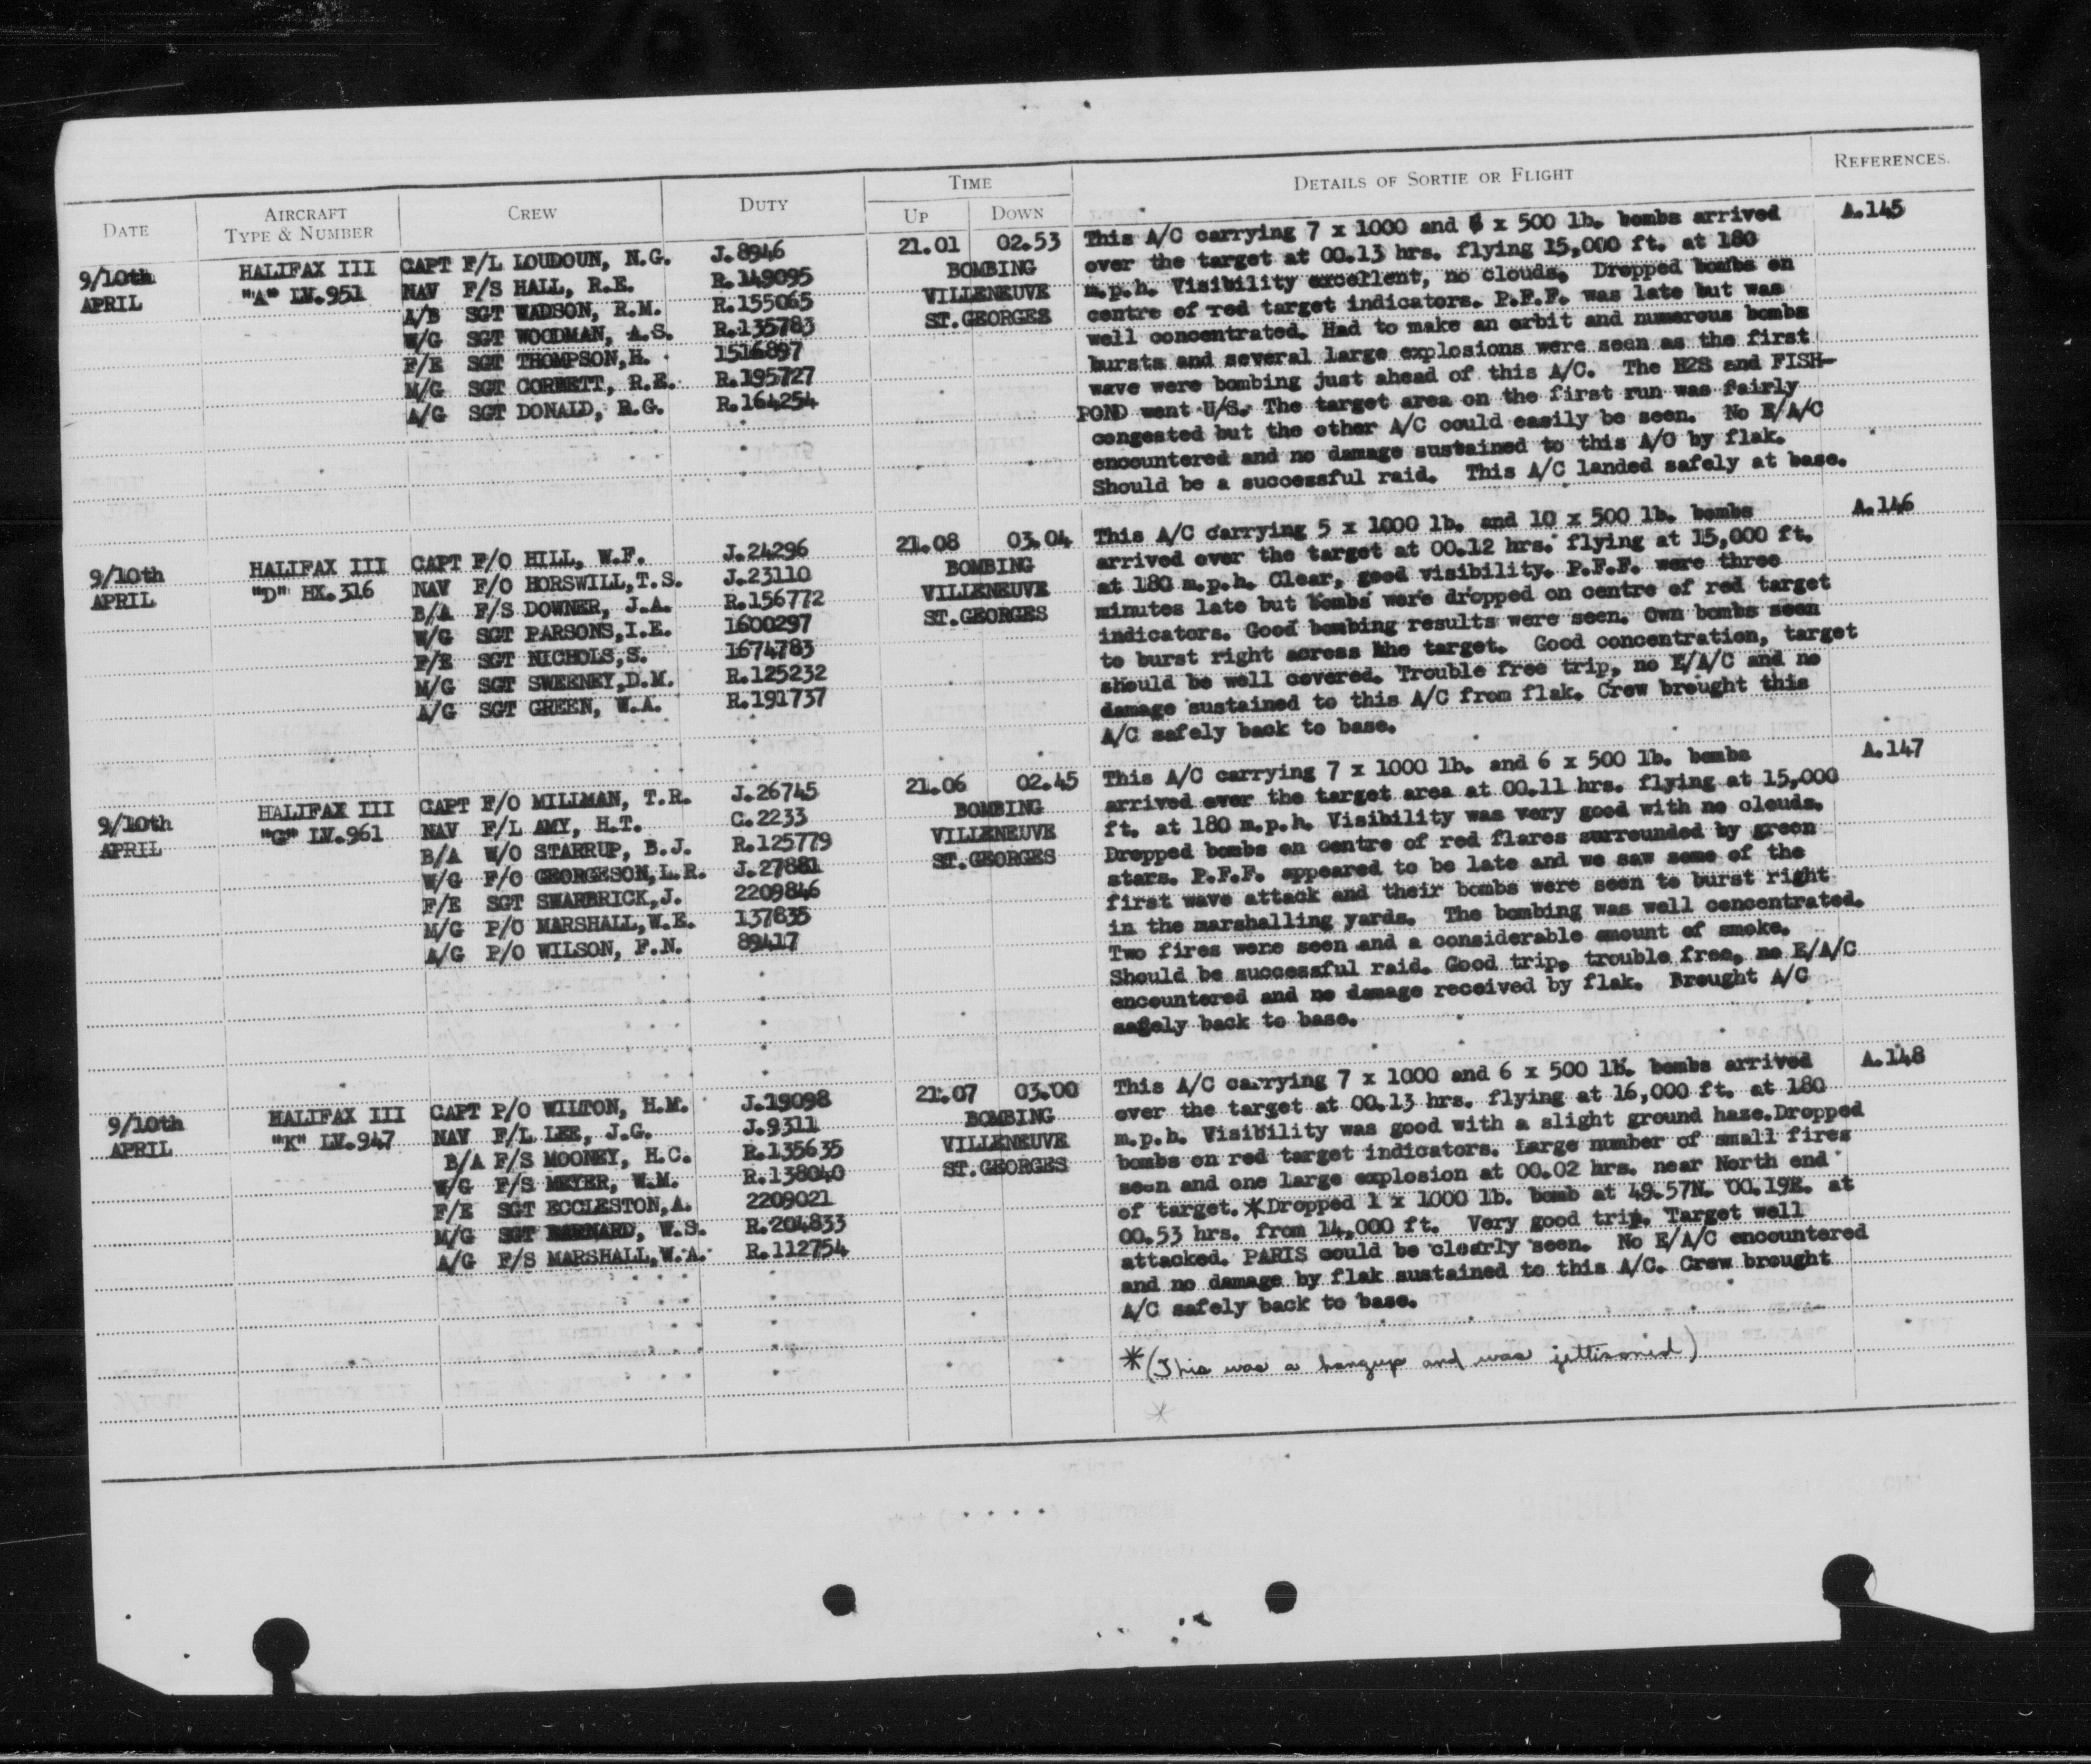 DATE
AIRCRAFT
TYPE & NUMBER
CREW
DUTY
TIME
UP
DOWN
DETAILS OF SORTIE OR FLIGHT
REFERENCES.
9/10th
APRIL
HALIFAX III
"A" LV.951
CAPT F/L LOUDOUN, N.G. J.8946
NAV F/S HALL, R.E. R.149095
A/B SGT WADSON, R.M. R.155065
W/G SGT WOODMAN, A.S. R.135783
F/E SGT THOMPSON,H. 1516897
M/G SGT CORBETT, R.E. R.195727
A/G SGT DONALD, R.G. R.164254
21.01 02.53
BOMBING
VILLENEUVE
ST.GEORGES
This A/C carrying 7 x 1000 and x 500 lb. bombs arrived
over the target at 00.13 hrs. flying 15,000 ft. at 180
m.p.h. Visibility excellent, no clouds. Dropped bombs on
centre of red target indicators. P.F.F. was late but was
well concentrated. Had to make an orbit and numerous bombs
bursts and several large explosions were seen as the first
wave were bombing just ahead of this A/C. The H2S and FISH-
POND went U/S. The target area on the first run was fairly
congested but the other A/C could easily be seen. No E/A/C
encountered and no damage sustained to this A/C by flak.
Should be a successful raid. This A/C landed safely at base.
A.145
9/10th
APRIL
HALIFAX III
"D" HX.316
CAPT F/O HILL, W.F. J.24296
NAV F/O HORSWILL,T.S. J.23110
B/A F/S DOWNER, J.A. R.156772
W/G SGT PARSONS,I.E. 1600297
F/E SGT NICHOLS,S. 1674783
M/G SGT SWEENEY,D.M. R.125232
A/G SGT GREEN, W.A. R.191737
21.08 03.04
BOMBING
VILLENEUVE
ST.GEORGES
This A/C carrying 5 x 1000 lb. and 10 x 500 lb. bombs
arrived over the target at 00.12 hrs. flying at 15,000 ft.
at 180 m.p.h. Clear, good visibility. P.F.F. were three
minutes late but bombs were dropped on centre of red target
indicators. Good bombing results were seen. Own bombs seen
to burst right across the target. Good concentration, target
should be well covered. Trouble free trip, no E/A/C and no
damage sustained to this A/C from flak. Crew brought this
A/C safely back to base.
A.146
9/10th
APRIL
HALIFAX III
"G" LV.961
CAPT F/O MILLMAN, T.R. J.26745
NAV F/L AMY, H.T. C.2233
B/A W/O STARRUP, B.J. R.125779
W/G F/O GEORGESON,L.R. J.27881
F/E SGT SWARBRICK,J. 2209846
M/G P/O MARSHALL,W.E. 137835
A/G P/O WILSON, F.N. 89417
21.06 02.45
BOMBING
VILLENEUVE
ST.GEORGES
This A/C carrying 7 x 1000 lb. and 6 x 500 lb. bombs
arrived over the target area at 00.11 hrs. flying at 15,000
ft. at 180 m.p.h. Visibility was very good with no clouds.
Dropped bombs on centre of red flares surrounded by green
stars. P.F.F. appeared to be late and we saw some of the
first wave attack and their bombs were seen to burst right
in the marshalling yards. The bombing was well concentrated.
Two fires were seen and a considerable amount of smoke.
Should be successful raid. Good trip, trouble free, no E/A/C
encountered and no damage received by flak. Brought A/C
safely back to base.
A.147
9/10th
APRIL
HALIFAX III
"K" LV.947
CAPT P/O WILTON, H.M. J.19098
NAV F/L LEE, J.G. J.9311
B/A F/S MOONEY, H.C. R.135635
W/G F/S MEYER, W.M. R.138040
F/E SGT ECCLESTON,A. 2209021
M/G SGT BARNARD, W.S. R.204833
A/G F/S MARSHALL,W.A. R.112754
21.07 03.00
BOMBING
VILLENEUVE
ST.GEORGES
This A/C carrying 7 x 1000 and 6 x 500 lb. bombs arrived
over the target at 00.13 hrs. flying at 16,000 ft. at 180
m.p.h. Visibility was good with a slight ground haze.Dropped
bombs on red target indicators. Large number of small fires
seen and one large explosion at 00.02 hrs. near North end
of target.*Dropped 1 x 1000 lb. bomb at 49.57N. 00.19E. at
00.53 hrs. from 14,000 ft. Very good trip. Target well
attacked. PARIS could be clearly seen. No E/A/C encountered
and no damage by flak sustained to this A/C. Crew brought
A/C safely back to base.
A.148
*(This was a hangup and was jettisonid)